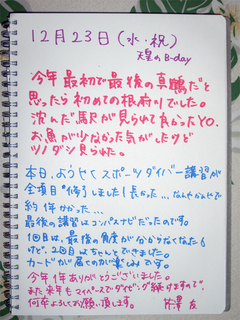 12月23日(水・祝)
天皇のB-day
今年最初で最後の真鶴だと
思ったら初めての根府川でした。
沈んだ馬尺が見られて良かったYO。
お魚が少なかった気がしたけど
ツノダシ見られた。
本日、ようやくスポーツダイバー講習が
全項目終了しました!長かった…、なんやかんやで
約1年かかった…
最後の講習はコンパスナビだったのです。
1回目は、最後の角度が分からなくなった
けど、2回目はちゃんとできました。
カードが届くのが楽しみです。
今年1年ありがとうございました。
また来年もマイペースでダイビング続けますので、
何卒よろしくお願い致します。